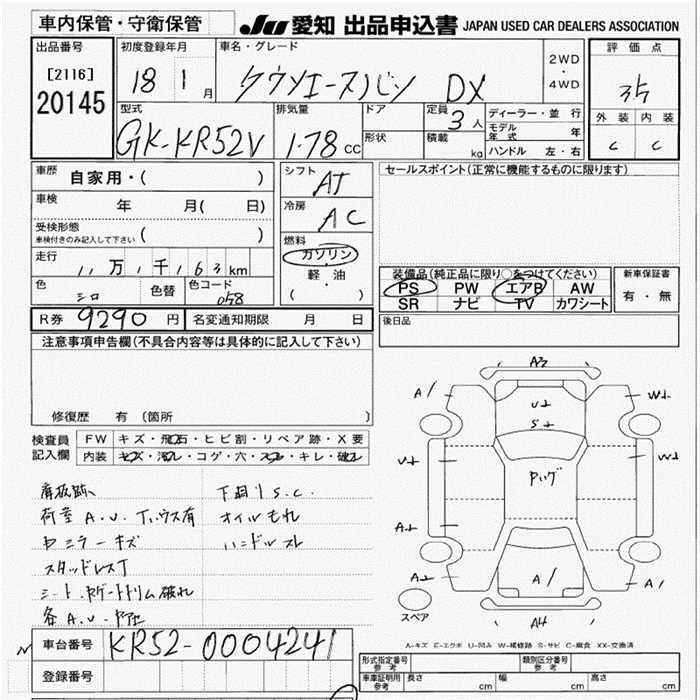 車内保管・守衛保管
JU 愛知 出品申込書 JAPAN USED CAR DEALERS ASSOCIATION
出品番号
[2116]
20145
初度登録年月
18 1 月
車名・グレード
DX
2WD
・
4WD
評価点
外装 内装
C C
型式
GK-KR52V
排気量
1.78 CC
ドア
形状
定員 3 人
積載 kg
ディーラー・並行
モデル年式 年
ハンドル 左・右
車歴 自家用・( )
車検 年 月( 日)
受検形態
車検付きのみ記入して下さい ( )
走行
11万1千163km
色 シロ
色替
色コード 058
シフト AT
冷房 AC
燃料
ガソリン
軽油
( ・ )
セールスポイント(正常に機能するものに限ります)
装備品(純正品に限り○をつけてください)
PS PW エアB AW
SR ナビ TV カワシート
新車保証書
有・無
R券 9290 円
名変通知期限 月 日
後日品
注意事項申告欄(不具合内容等は具体的に記入して下さい)
修復歴 有 (箇所 )
検査員記入欄
FW キズ・飛石・ヒビ割・リペア跡・X要
内装 キズ・汚レ・コゲ・穴・スレ・キレ・破レ
下廻りS.C.
荷室A.U.
オイルもれ
ミラーキズ
ハンドルスレ
スタッドレスT
破れ
各A.U.
A3
A/
U
S
W
A/
A/
A4
スペア
A-キズ E-エクボ U-凹み W-補修跡 S-サビ C-腐食 XX-交換済
車台番号 KR52-0004241
登録番号
形式指定番号 参考
類別区分番号 参考
車庫証明用 参考 長さ cm 幅 cm 高さ cm